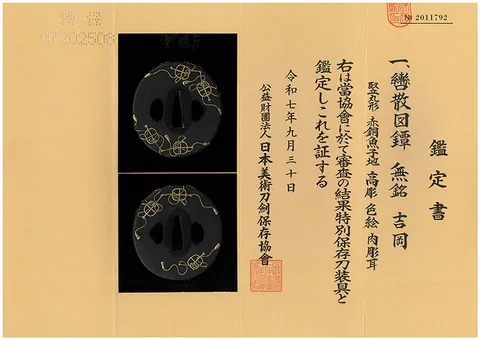 № 2011792
鑑定書
一、轡散図鐔 無銘 吉岡
竪丸形 赤銅魚子地 高彫 色絵 肉彫耳
右は當協會に於て審査の結果特別保存刀装具と
鑑定しこれを証する
令和七年九月三十日
公益財團法人 日本美術刀劍保存協會